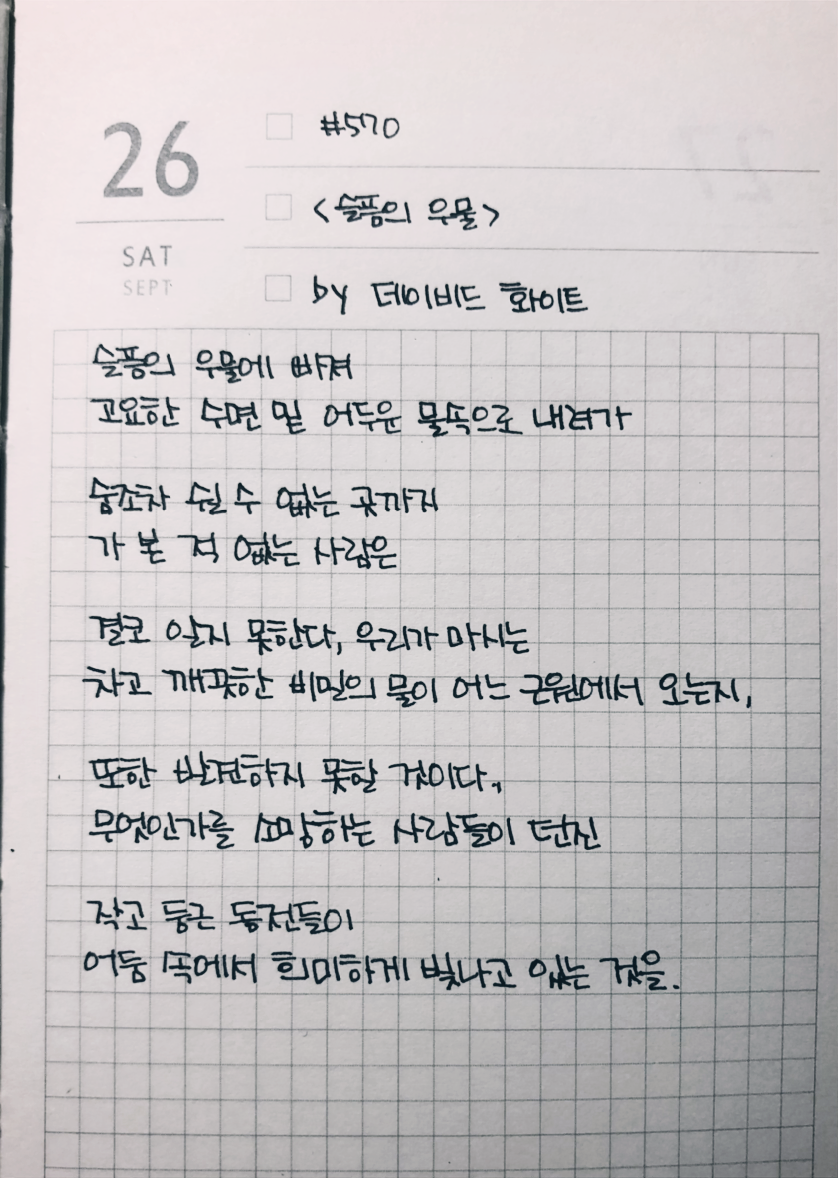 26
SAT
SEPT
#570
<슬픔의 우물>
by 데이비드 화이트
슬픔의 우물에 빠져
고요한 수면 밑 어두운 물속으로 내려가
숨조차 쉴 수 없는 곳까지
가 본 적 없는 사람은
결코 알지 못한다, 우리가 마시는
차고 깨끗한 비밀의 물이 어느 근원에서 오는지,
또한 발견하지 못할 것이다,
무엇인가를 소망하는 사람들이 던진
작고 둥근 동전들이
어둠 속에서 희미하게 빛나고 있는 것을.